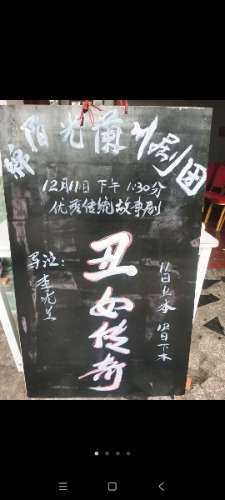 乡阳光黄州剧团
12月11日下午1:30分
优秀传统故事剧
丑女传奇
11日上本
12日下本
导演：